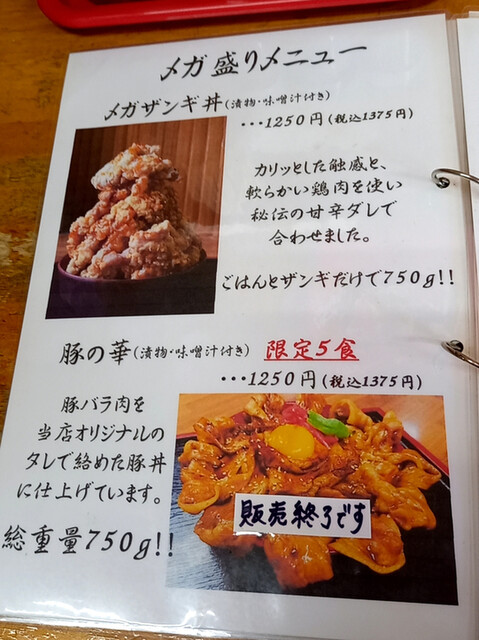 メガ盛りメニュー
メガザンギ丼(漬物・味噌汁付き)
・・・1250円(税込1375円)
カリッとした触感と、
軟らかい鶏肉を使い
秘伝の甘辛ダレで
合わせました。
ごはんとザンギだけで750g!!
豚の華(漬物・味噌汁付き) 限定5食
・・・1250円(税込1375円)
豚バラ肉を
当店オリジナルの
タレで絡めた豚丼
に仕上げています。
総重量750g!!
販売終了です